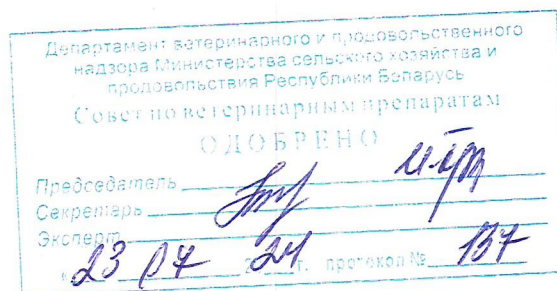 Департамент ветеринарного и продовольственного
надзора Министерства сельского хозяйства и
продовольствия Республики Беларусь
Совет по ветеринарным препаратам
ОДОБРЕНО
Председатель
Секретарь
Эксперт
« 23 07 2 24 г. протокол № 137